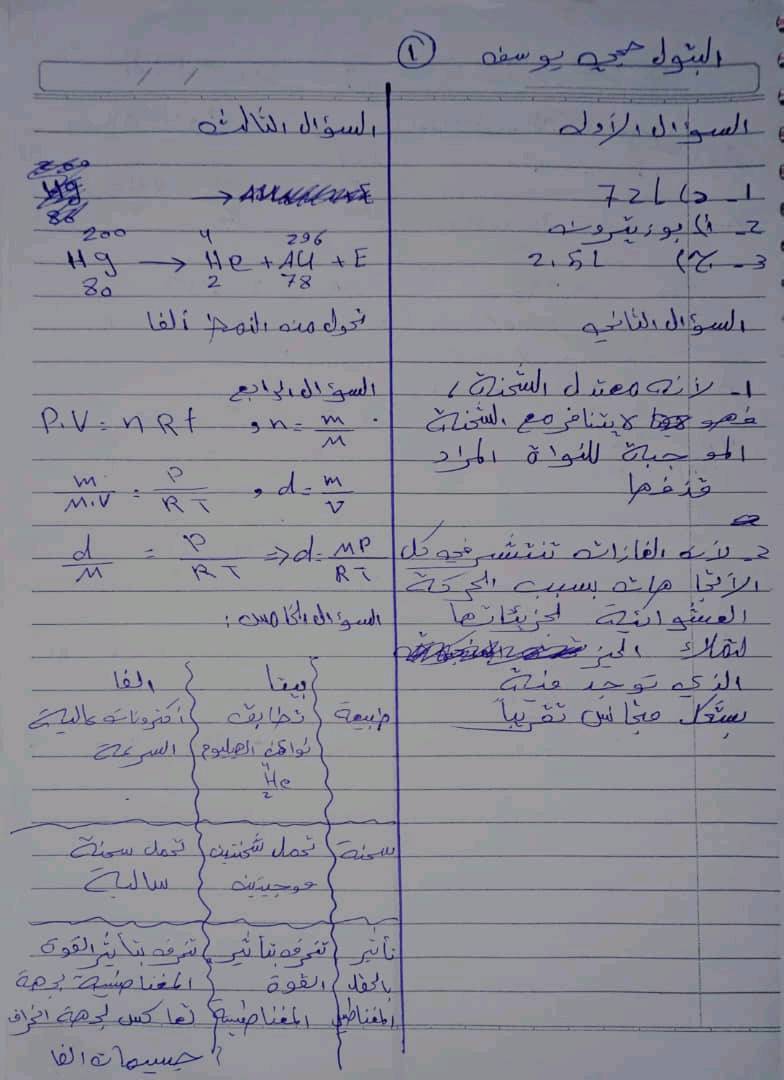 البتول حجي يوسف ①
السؤال الأول
1- د) 72 L
2- أ) بوزيترون
3- ج) 2.5 L
السؤال الثاني
1- لأنه معتدل الشحنة،
فهو لا يتنافر مع الشحنة
الموجبة للنواة المراد
قذفها
2- لأن الغازات تنتشر في كل
الاتجاهات بسبب الحركة
العشوائية لجزيئاتها
لتملأ الحيز
الذي توجد فيه
بشكل متجانس تقريباً
السؤال الثالث
200 4 296
Hg → He + Au + E
80 2 78
تحول من النمط ألفا
السؤال الرابع
P.V = n R t , n = m/M
m/M.V = P/RT , d = m/V
d/M = P/RT => d = MP/RT
السؤال الخامس:
بيتا الفا
طبيعة تطابق نواة الهليوم 4 2 He الكترونات عالية السرعة
شحنة تحمل شحنتين موجبتين تحمل شحنة سالبة
تأثير بالحقل المغناطيسي تنحرف بتأثير القوة المغناطيسية تنحرف بتأثير القوة المغناطيسية لجهة تعاكس لجهة انحراف جسيمات الفا